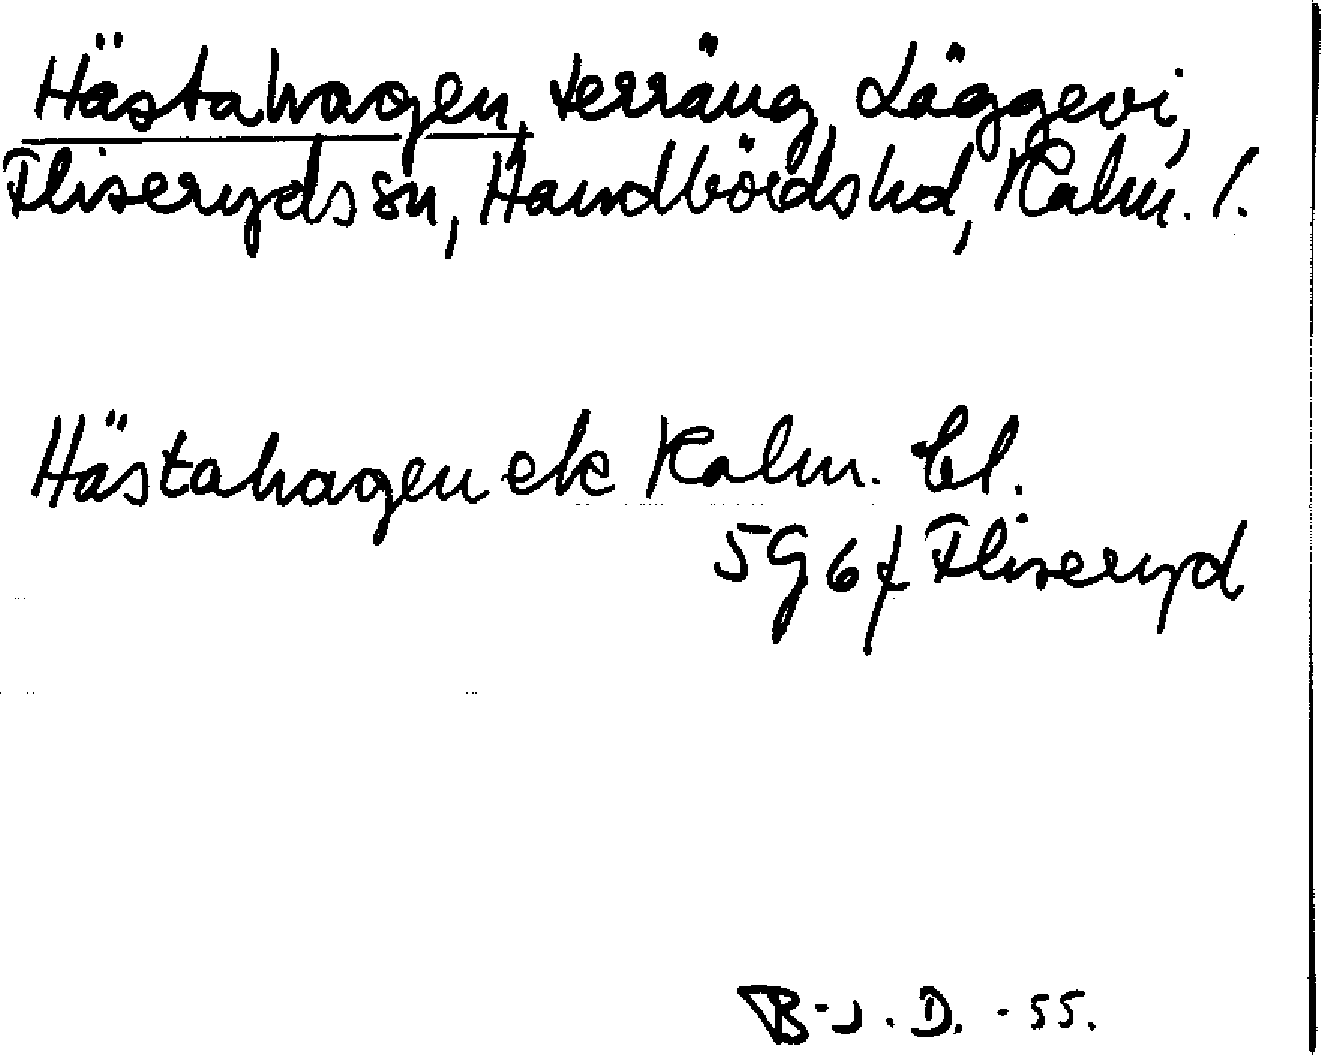 Hästahagen, terräng, Läggevi,
Fliseryds sn, Handbörds hd, Kalm. l.
Hästahagen ek Kalm. bl.
5G6f Fliseryd
B-J. D. -55.